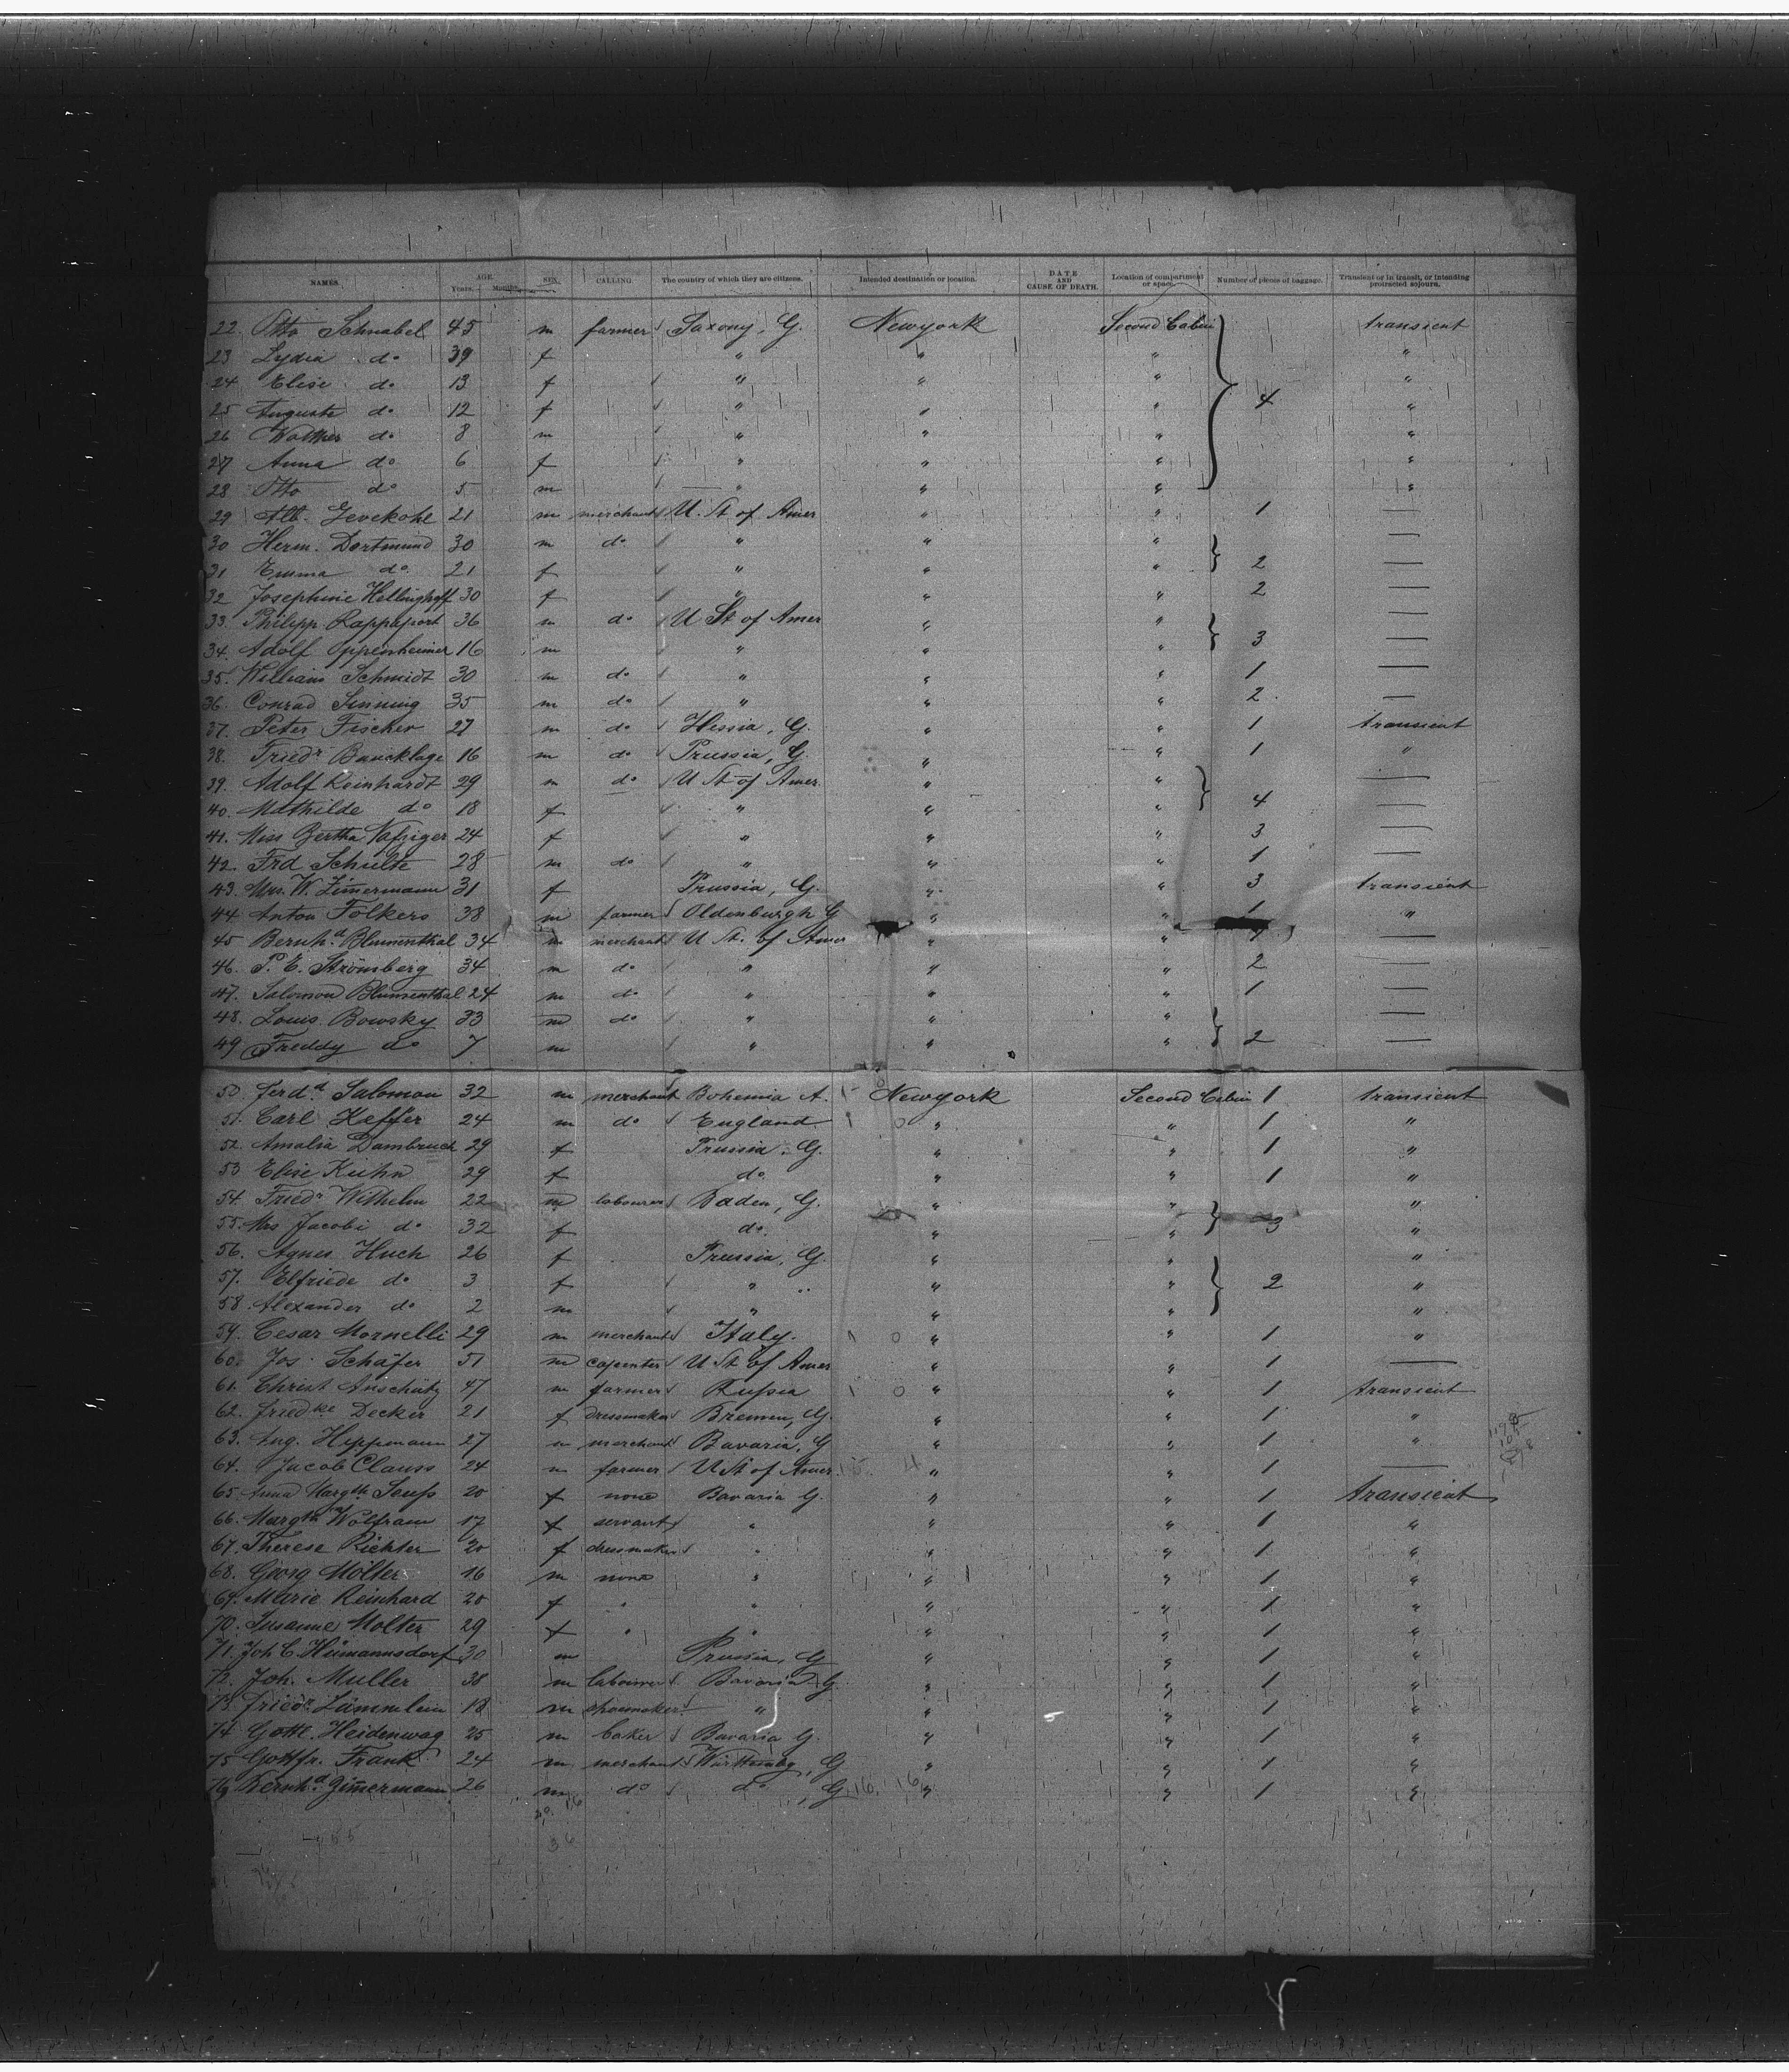 NAMES. AGE. Years. Months. SEX. CALLING. The country of which they are citizens. Intended destination or location. DATE AND CAUSE OF DEATH. Location of compartment or space. Number of pieces of baggage. Transient or in transit, or intending protracted sojourn.
22. Otto Schnabel 45 m farmer Saxony, G. Newyork Second Cabin transient
23 Lydia do 39 f " " " "
24 Elise do 13 f " " " "
25 Auguste do 12 f " " " 4 "
26 Walther do 8 m " " " "
27 Anna do 6 f " " " "
28 Otto do 5 m " " " "
29 Alb. Jevekohl 21 m merchant U. St of Amer " " 1 —
30 Herm. Dortmund 30 m do " " " —
31 Emma do. 21 f " " " 2 —
32 Josephine Hellinghoff 30 f " " " 2 —
33. Philipp Rappaport 36 m do U St of Amer " " —
34. Adolf Oppenheimer 16 m " " " 3 —
35. William Schmidt 30 m do " " " 1 —
36. Conrad Sinning 35 m do " " " 2 —
37. Peter Fischer 27 m do Hessia, G. " " 1 transient
38. Friedr Baucklage 16 m do Prussia, G. " " 1 "
39. Adolf Reinhardt 29 m do U St of Amer " " —
40. Mathilde do 18 f " " " 4 —
41. Miss Bertha Nafziger 24 f " " " 3 —
42. Frd Schulte 28 m do " " " 1 —
43. Mrs. W. Zimermann 31 f Prussia, G. " " 3 transient
44 Anton Folkers 38 m farmer Oldenburgh G " " 1 "
45 Bernhd Blumenthal 34 m merchant U St. of Amer " " —
46. P. E. Strömberg 34 m do " " " 2 —
47. Salomon Blumenthal 24 m do " " " 1 —
48. Louis Bowsky 33 m do " " " —
49 Freddy do 7 m " " " 2 —
50. Ferdd Salomon 32 m merchant Bohemia A. Newyork Second Cabin 1 transient
51. Carl Heffer 24 m do England " " 1 "
52. Amalia Dambruch 29 f Prussia. G. " " 1 "
53 Elise Kuhn 29 f do " " 1 "
54. Friedr Wilhelm 22 m labourer Baden, G. " " "
55. Mrs Jacobi do 32 f do. " " 3 "
56. Agnes Huch 26 f Prussia, G. " " "
57. Elfriede do 3 f " " " 2 "
58. Alexander do 2 m " " " "
59. Cesar Mornelli 29 m merchant Italy. 1 0 " " 1 "
60. Jos. Schäfer 51 m capenter U St of Amer " " 1 —
61. Christ Anschütz 47 m farmer Russia 1 0 " " 1 transient
62. Friedke Decker 21 f dressmaker Bremen, G. " " 1 "
63. Aug. Heppmann 27 m merchant Bavaria, G " " 1 "
64. Jacob Clauss 24 m farmer U St of Amer. " " 1 —
65 Anna Margth 20 f none Bavaria G. " " 1 transient
66. Margth Wolfram 17 f servant " " " 1 "
67. Therese Richter 20 f dressmaker " " " 1 "
68. Georg Molter 16 m none " " " 1 "
69. Marie Reinhard 20 f " " " " 1 "
70. Susanne Molter 29 f " " " " 1 "
71. Joh C. Hümannsdorf 30 m Prussia, G " " 1 "
72. Joh. Muller 38 m labourer Bavaria G. " " 1 "
73. Friedr Lämmlein 18 m shoemaker " " " 1 "
74 Gottl. Heidenwag 25 m baker Bavaria G. " " 1 "
75 Gottfr. Frank 24 m merchant Württembg, G " " 1 "
76 Bernhd Zimermann 26 m do do, G 16. 16 " " 1 "